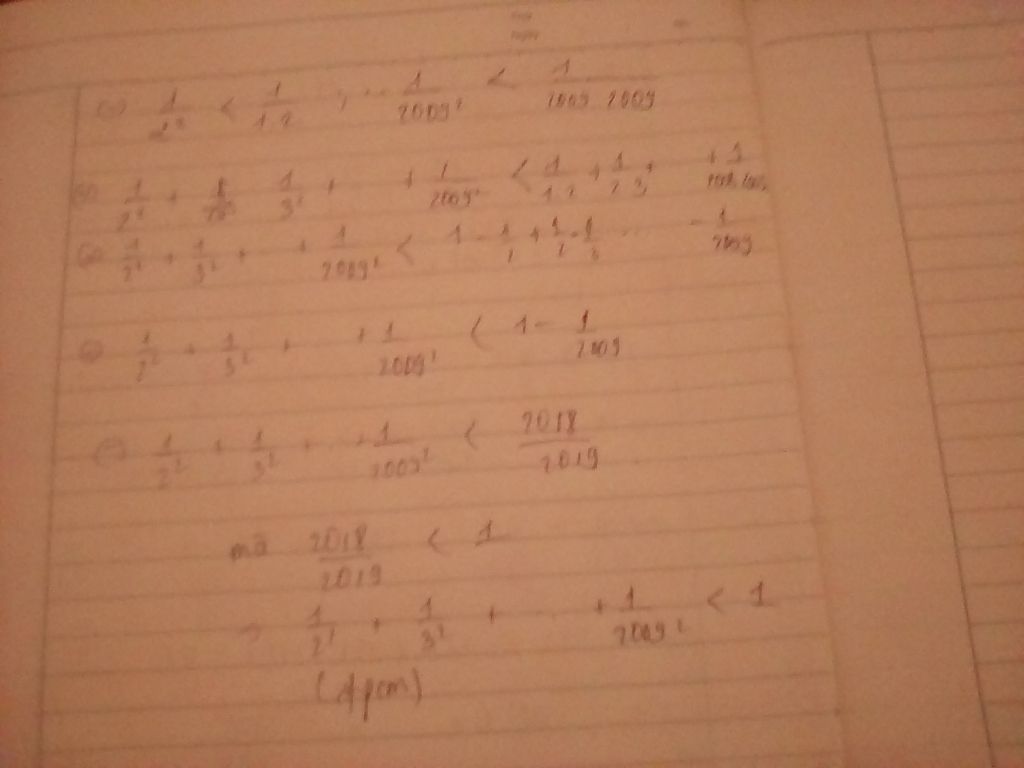 (=) 1/2² < 1/1.2 ; ... 1/2009² < 1/2009.2009
(=) 1/2² + 1/3² + + 1/2009² < 1/1.2 + 1/2.3 + + 1/2008.2009
(=) 1/2² + 1/3² + + 1/2009² < 1 - 1/2 + 1/2 - 1/3 ... - 1/2009
(=) 1/2² + 1/3² + + 1/2009² < 1 - 1/2009
(=) 1/2² + 1/3² + ... + 1/2009² < 2018/2019
mà 2018/2019 < 1
→ 1/2² + 1/3² + ... + 1/2009² < 1
(đpcm)